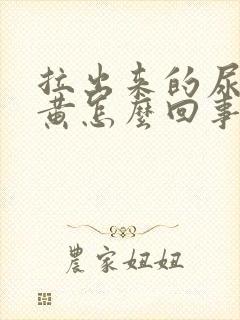 拉出来的尿
黄怎麼回事
農家妞妞